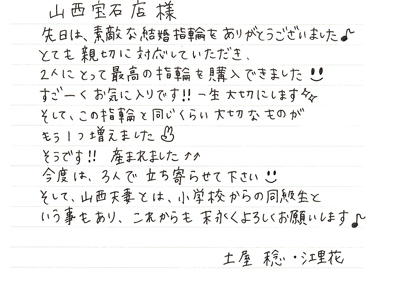 山西宝石店 様
先日は、素敵な結婚指輪を ありがとうございました♪
とても 親切に 対応していただき、
2人にとって最高の指輪を購入できました☺
すごーく お気に入りです!! 一生 大切にします✨
そして、この指輪と同じくらい大切なものが
もう1つ増えました✌
そうです!! 産まれました↑↑
今度は、3人で 立ち寄らせて下さい☺
そして、山西夫妻とは、小学校からの同級生と
いう事もあり、これからも 末永くよろしくお願いします♪
土屋 稔・江里花